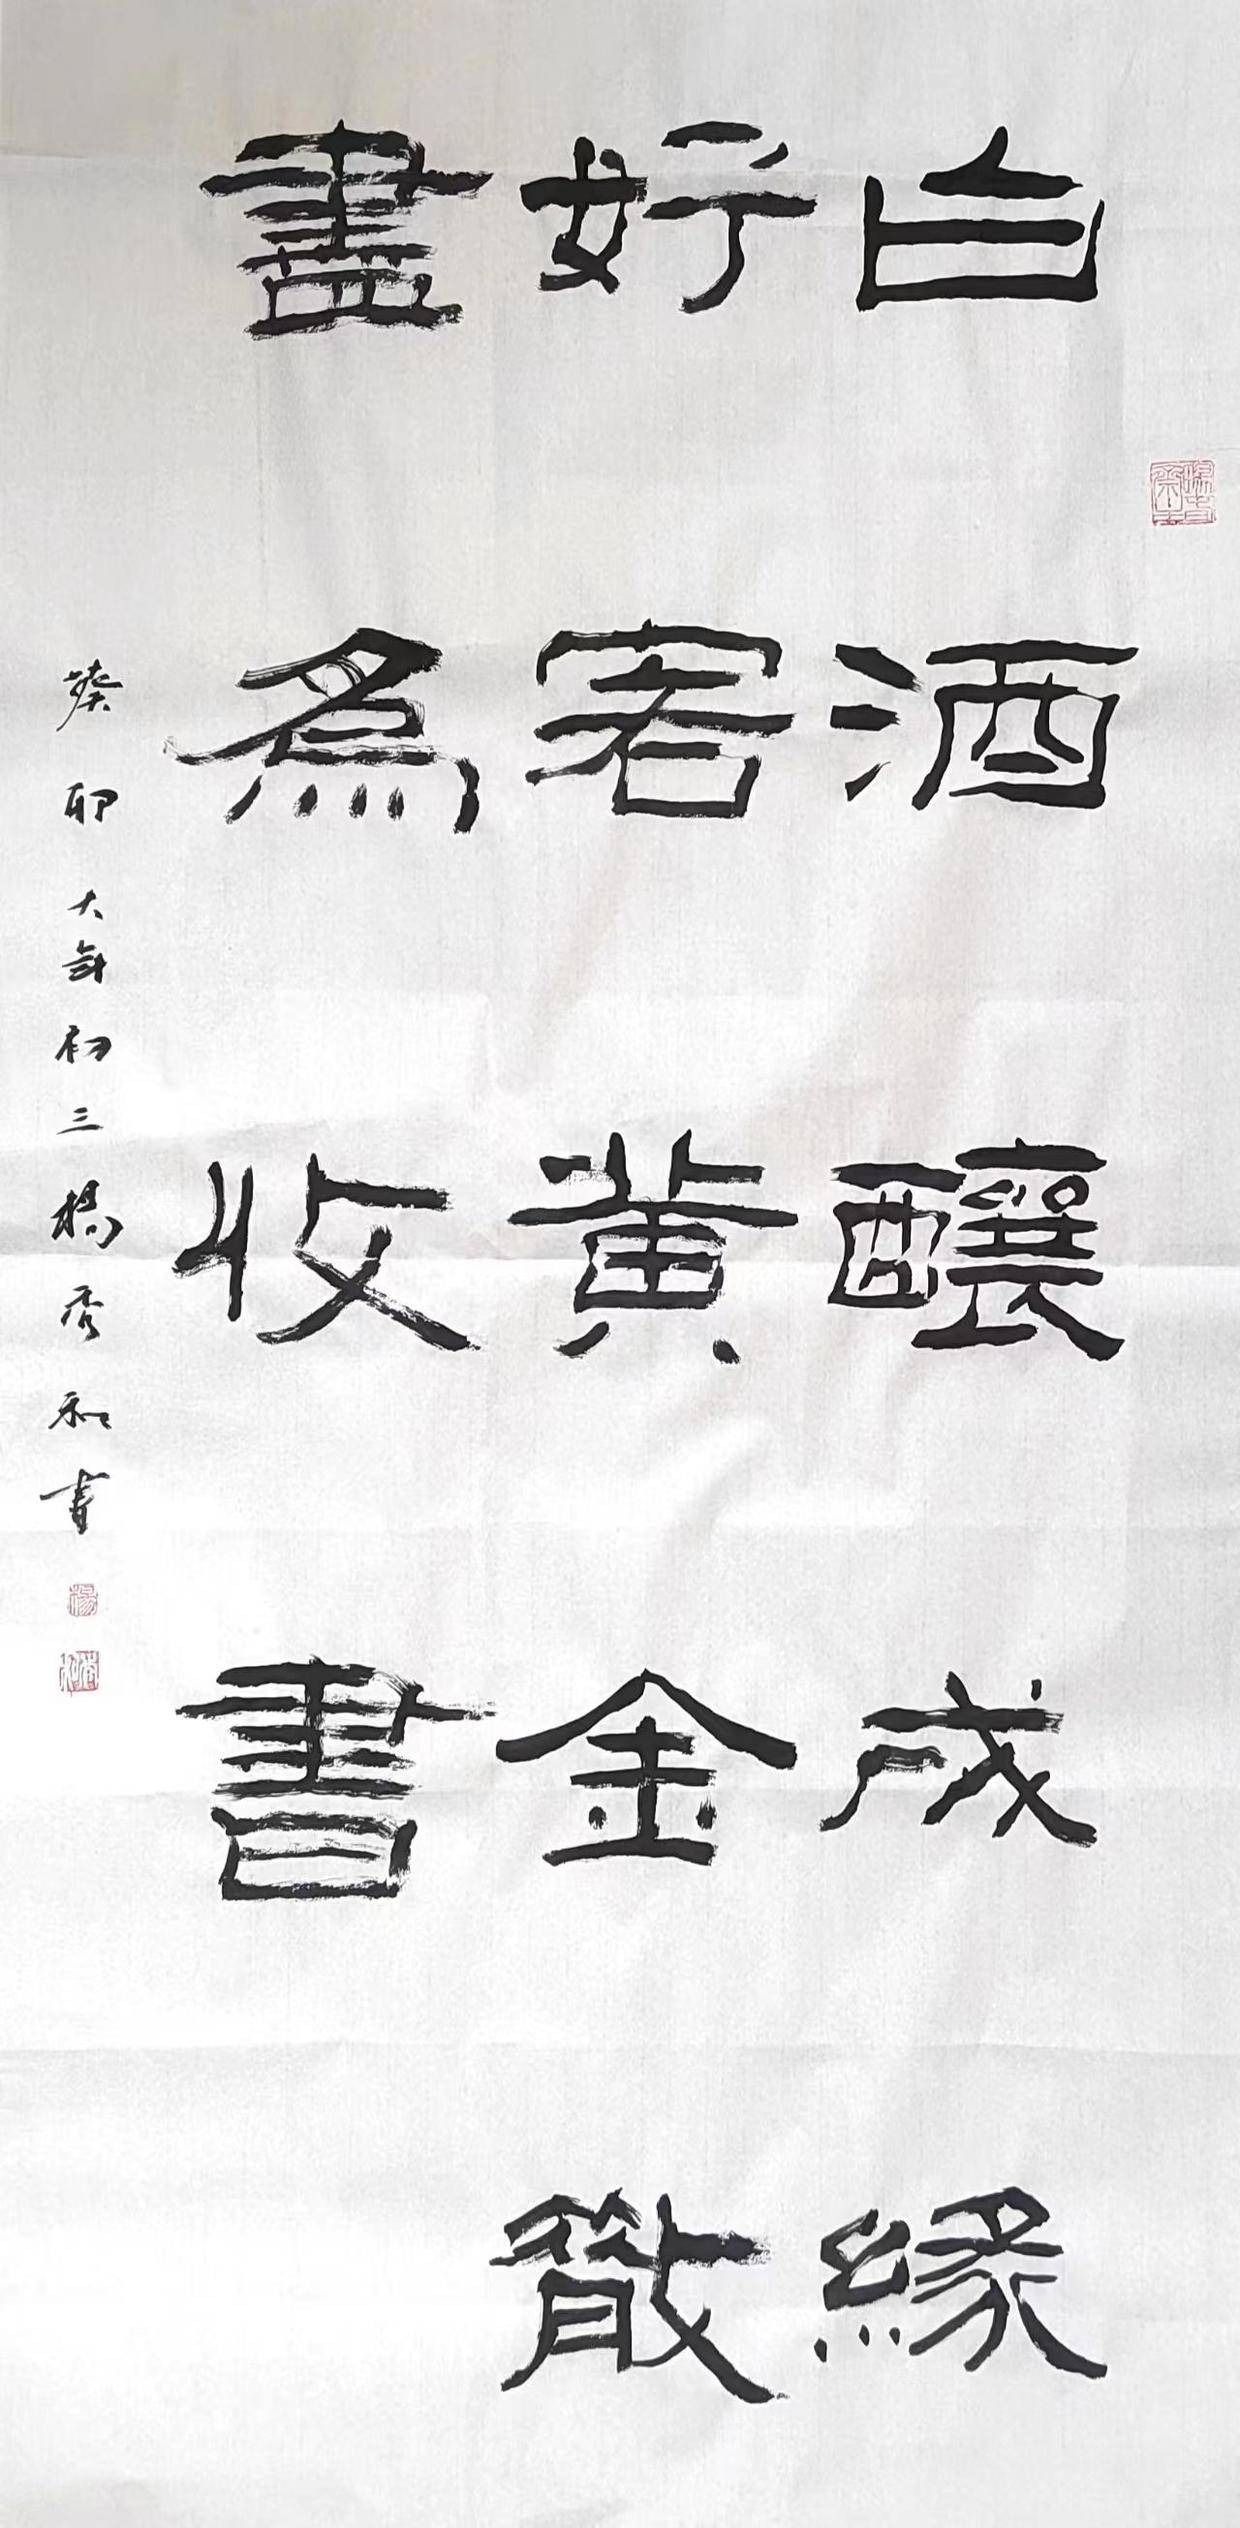 白酒釀成緣
好客黄金散
盡為收書
癸卯大年初三楊秀和書